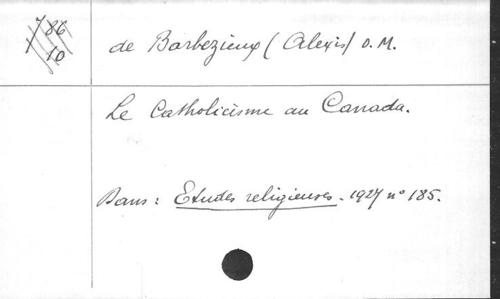 786
10
de Barbezieux (Alexis) O.M.
Le Catholicisme au Canada.
Dans : Etudes religieuses. 1927 n° 185.